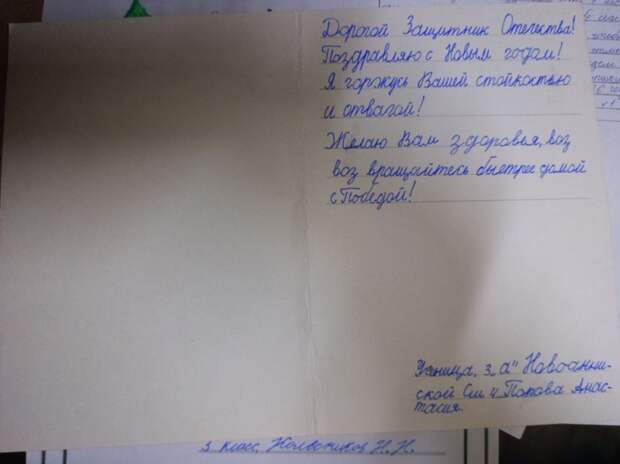 Дорогой Защитник Отечества!
Поздравляю с Новым годом!
Я горжусь Вашей стойкостью
и отвагой!
Желаю Вам здоровья, воз
воз вращайтесь быстрее домой
с Победой!
Ученица 3 „а" Новоанни-
ской Сш 4 Попова Анас-
тасия.
3 класс